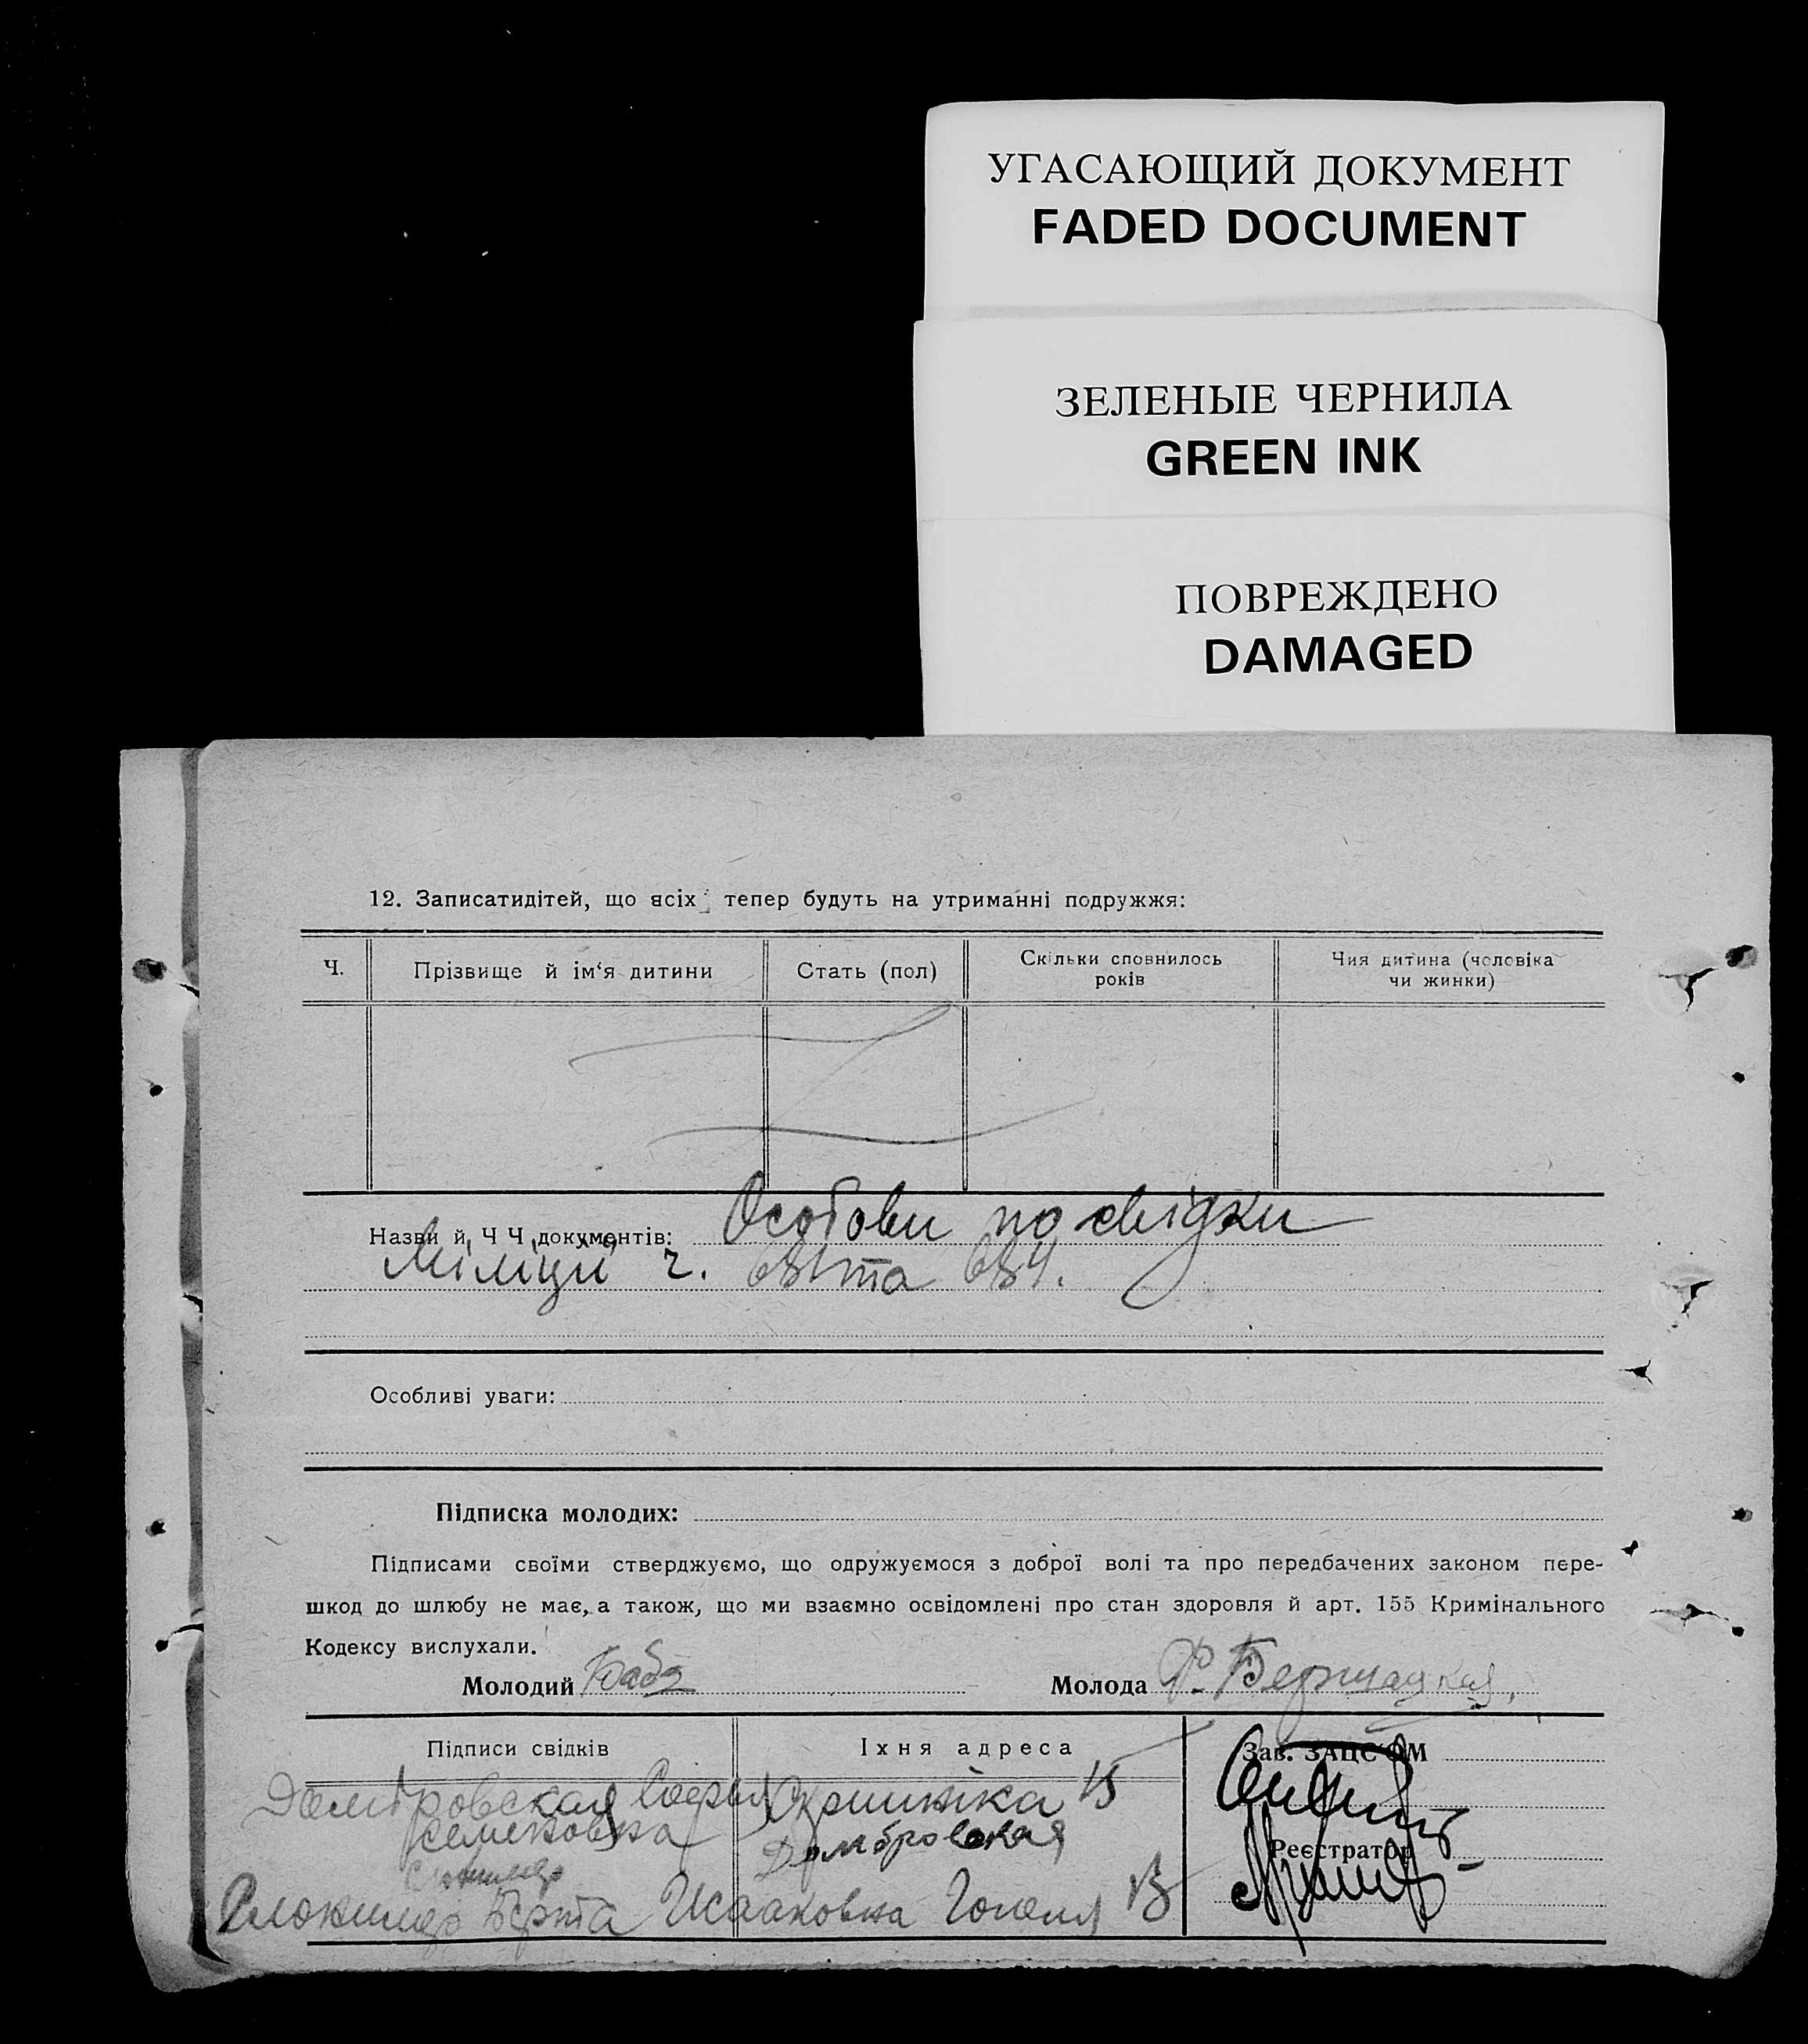 УГАСАЮЩИЙ ДОКУМЕНТ
FADED DOCUMENT
ЗЕЛЕНЫЕ ЧЕРНИЛА
GREEN INK
ПОВРЕЖДЕНО
DAMAGED
12. Записатидітей, що всіх тепер будуть на утриманні подружжя:
Ч.
Прізвище й ім‘я дитини
Стать (пол)
Скільки сповнилось
років
Чия дитина (чоловіка
чи жинки)
Назви й Ч Ч документів: Особови посвідки
Міліції ч. 681 та 684.
Особливі уваги:
Підписка молодих:
Підписами своїми стверджуємо, що одружуємося з доброї волі та про передбачених законом пере-
шкод до шлюбу не має, а також, що ми взаємно освідомлені про стан здоровля й арт. 155 Кримінального
Кодексу вислухали.
Молодий
Молода Р.
Підписи свідків
Їхня адреса
Зав. ЗАЦС'ОМ
Домбровская Софья 15
Семеновна
Домбровская
Реєстратор
Берта Исааковна Гоголя